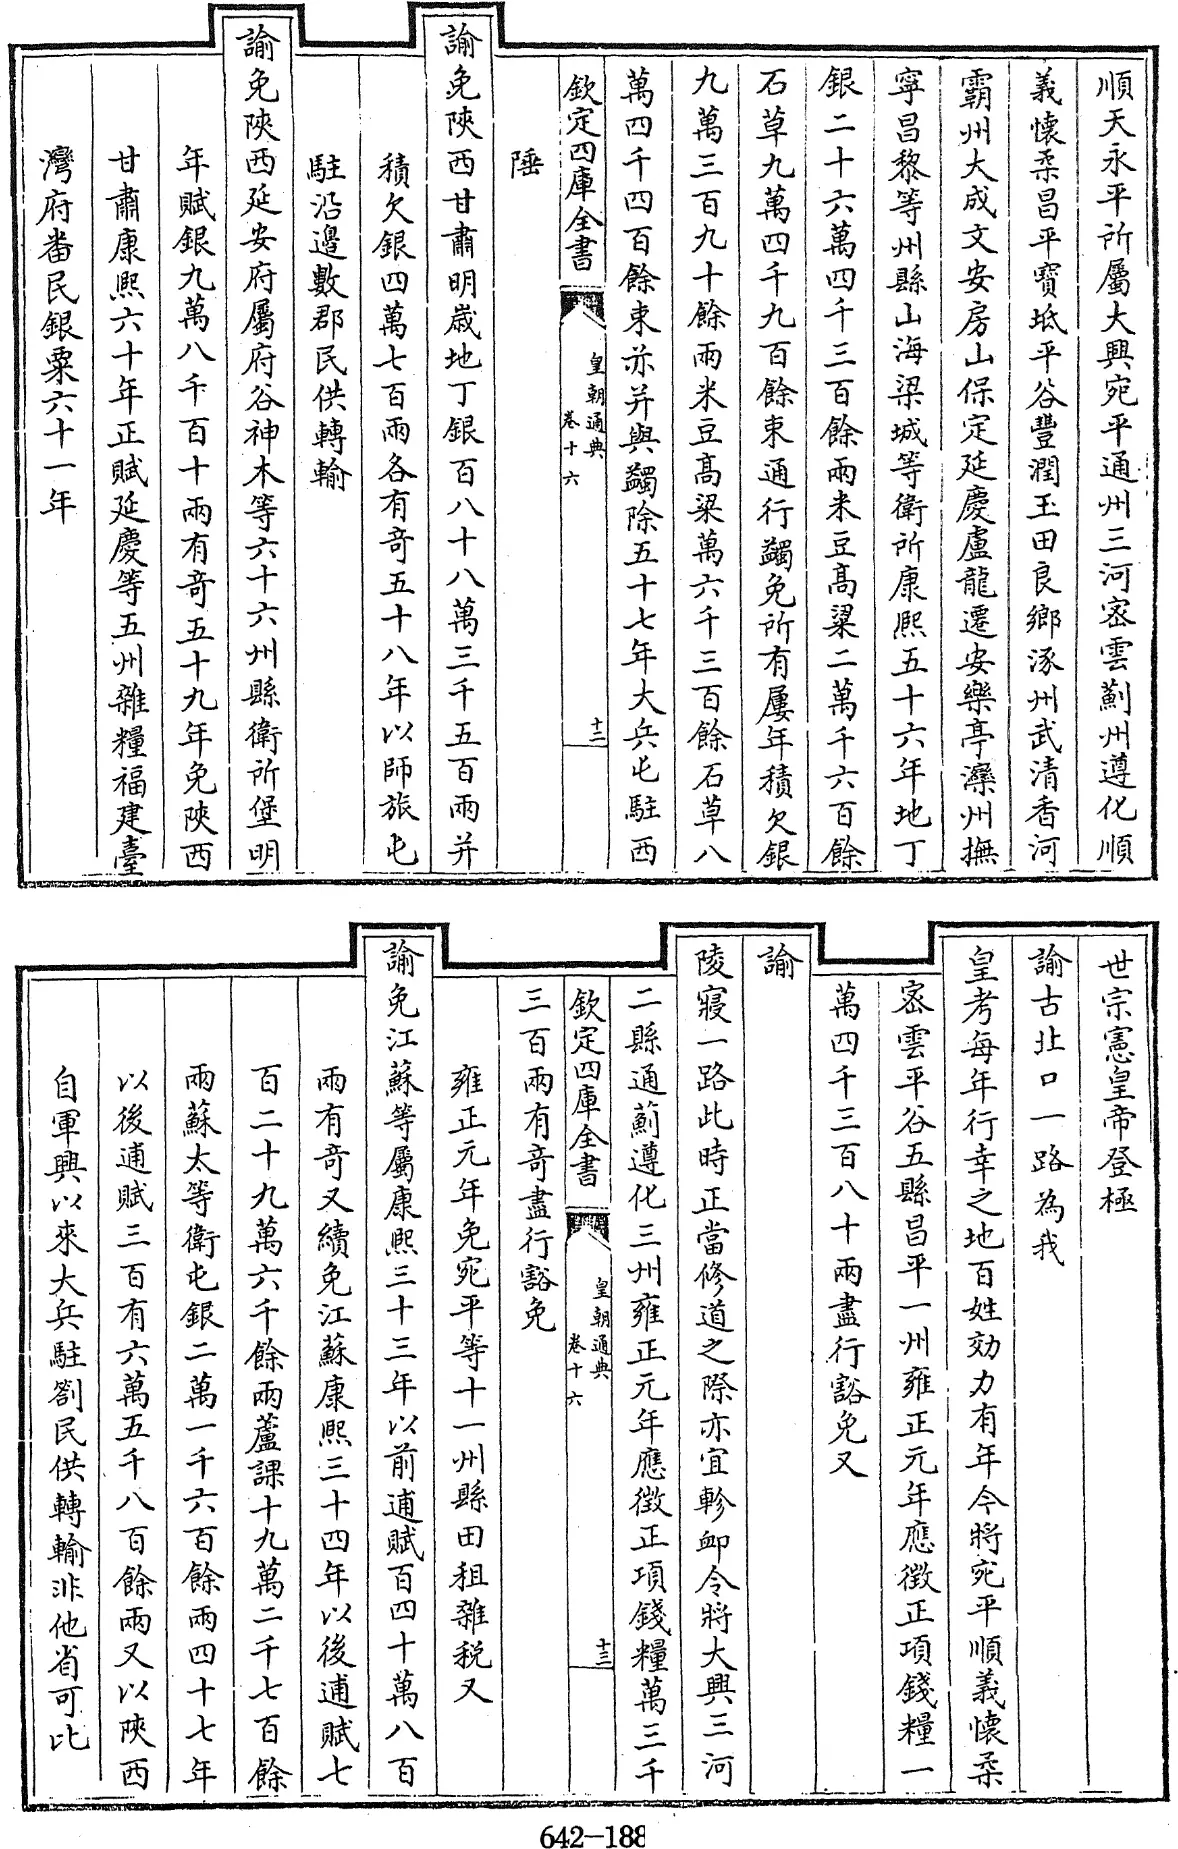 順天永平所屬大興宛平通州三河宻雲薊州遵化順
義懷柔昌平寶坻平谷豐潤玉田良鄉涿州武清香河
霸州大成文安房山保定延慶盧龍遷安樂亭灤州撫
寧昌黎等州縣山海梁城等衛所康熙五十六年地丁
銀二十六萬四千三百餘兩米豆髙粱二萬千六百餘
石草九萬四千九百餘束通行蠲免所有屢年積欠銀
九萬三百九十餘兩米豆髙粱萬六千三百餘石草八
萬四千四百餘束亦并與蠲除五十七年大兵屯駐西
欽定四庫全書
皇朝通典
卷十六
十二
陲
諭免陝西甘肅明歲地丁銀百八十八萬三千五百兩并
積欠銀四萬七百兩各有奇五十八年以師旅屯
駐沿邊數郡民供轉輸
諭免陝西延安府屬府谷神木等六十六州縣衛所堡明
年賦銀九萬八千百十兩有奇五十九年免陝西
甘肅康熙六十年正賦延慶等五州雜糧福建臺
灣府番民銀粟六十一年
世宗憲皇帝登極
諭古北口一路為我
皇考每年行幸之地百姓効力有年今將宛平順義懷柔
宻雲平谷五縣昌平一州雍正元年應徵正項錢糧一
萬四千三百八十兩盡行豁免又
諭
陵寢一路此時正當修道之際亦宜軫卹令將大興三河
二縣通薊遵化三州雍正元年應徵正項錢糧萬三千
欽定四庫全書
皇朝通典
卷十六
十三
三百兩有奇盡行豁免
雍正元年免宛平等十一州縣田租雜税又
諭免江蘇等屬康熙三十三年以前逋賦百四十萬八百
兩有奇又續免江蘇康熙三十四年以後逋賦七
百二十九萬六千餘兩蘆課十九萬二千七百餘
兩蘇太等衛屯銀二萬一千六百餘兩四十七年
以後逋賦三百有六萬五千八百餘兩又以陝西
自軍興以來大兵駐劄民供轉輸非他省可比
642-188